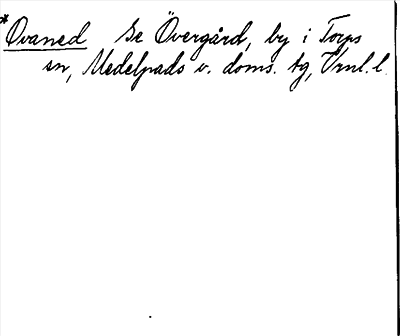 *Ovaned Se Övergård, by i Torps
sn, Medelpads v. doms. tg, Vrnl. l.